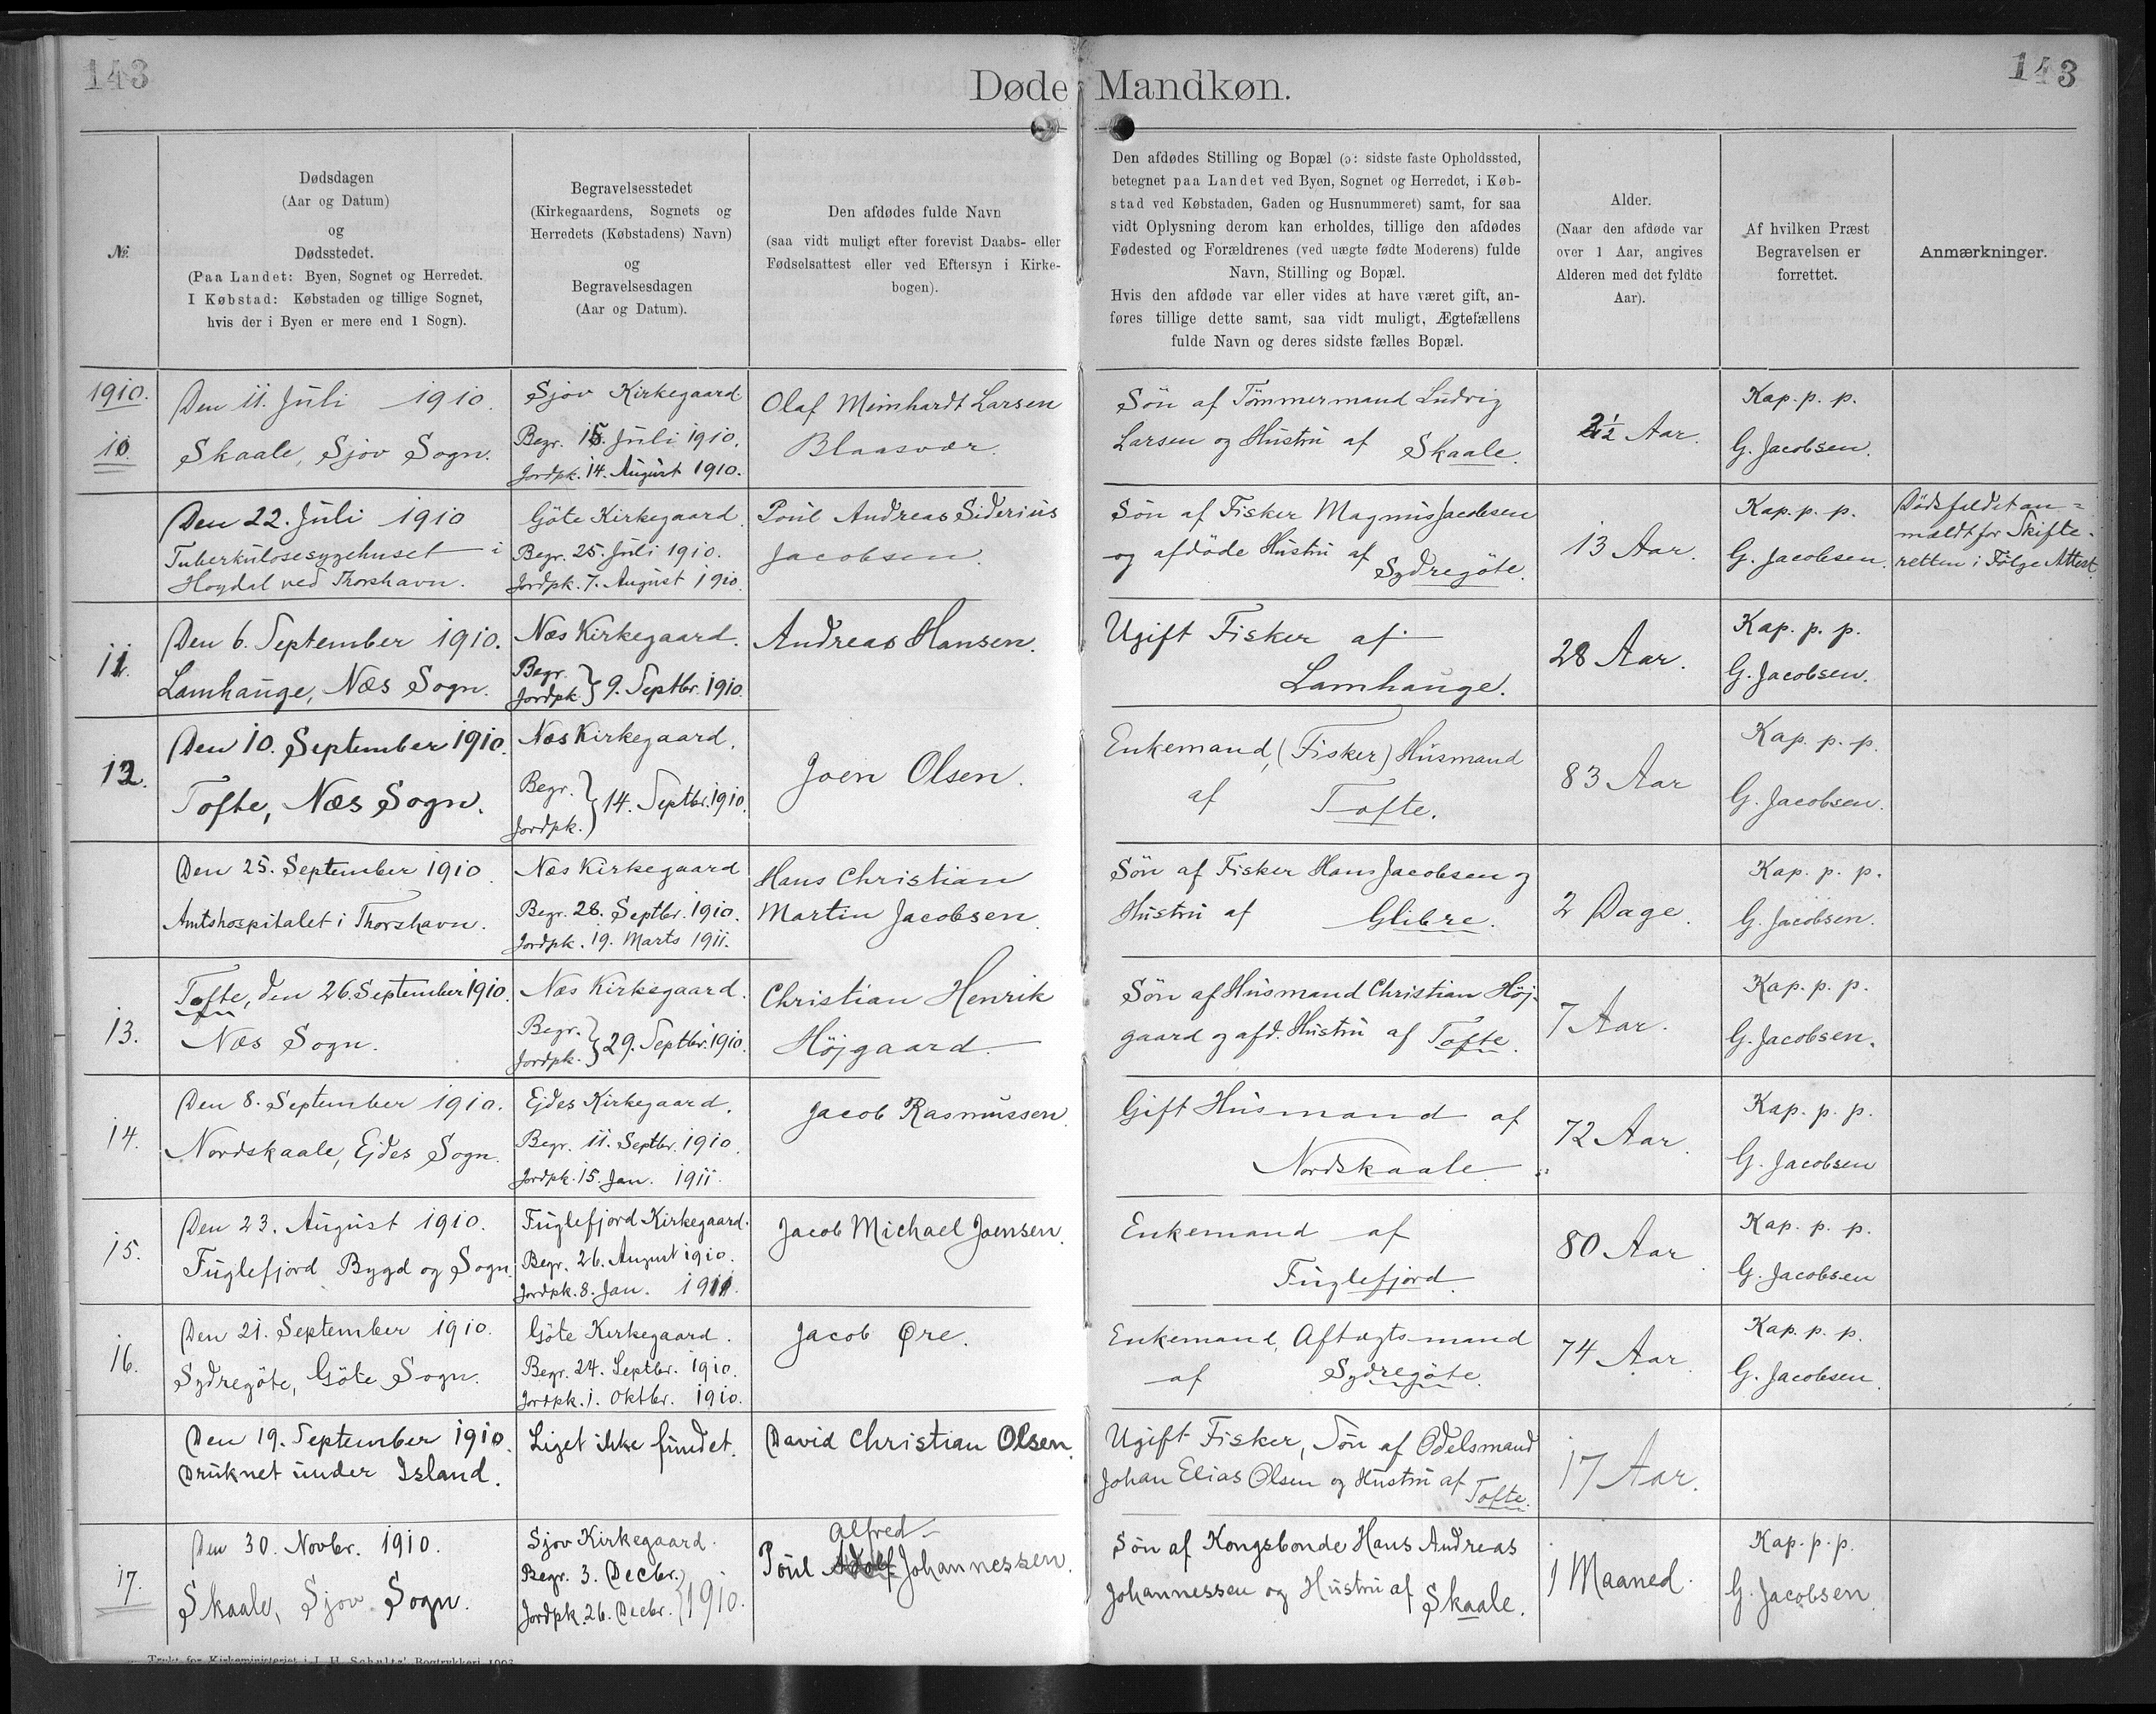 143
143
Døde Mandkøn.
№.
Dødsdagen
(Aar og Datum)
og
Dødsstedet.
(Paa Landet: Byen, Sognet og Herredet.
I Købstad: Købstaden og tillige Sognet,
hvis der i Byen er mere end 1 Sogn).
Begravelsesstedet
(Kirkegaardens, Sognets og
Herredets (Købstadens) Navn)
og
Begravelsesdagen
(Aar og Datum).
Den afdødes fulde Navn
(saa vidt muligt efter forevist Daabs- eller
Fødselsattest eller ved Eftersyn i Kirke-
bogen).
Den afdødes Stilling og Bopæl (ɔ: sidste faste Opholdssted,
betegnet paa Landet ved Byen, Sognet og Herredet, i Køb-
stad ved Købstaden, Gaden og Husnummeret) samt, for saa
vidt Oplysning derom kan erholdes, tillige den afdødes
Fødested og Forældrenes (ved uægte fødte Moderens) fulde
Navn, Stilling og Bopæl.
Hvis den afdøde var eller vides at have været gift, an-
føres tillige dette samt, saa vidt muligt, Ægtefællens
fulde Navn og deres sidste fælles Bopæl.
Alder.
(Naar den afdøde var
over 1 Aar, angives
Alderen med det fyldte
Aar).
Af hvilken Præst
Begravelsen er
forrettet.
Anmærkninger.
1910.
10
Den 11. Juli 1910.
Skaale, Sjov Sogn.
Sjov Kirkegaard.
Begr. 15. Juli 1910.
Jordpk. 14. August 1910.
Olaf Meinhardt Larsen
Blaasvær.
Søn af Tömmermand Ludvig
Larsen og Hustru af Skaale.
2½ Aar.
Kap. p. p.
G. Jacobsen.
Den 22. Juli 1910
Tuberkulosesygehuset i
Hoydal ved Thorshavn.
Göte Kirkegaard.
Begr. 25. Juli 1910.
Jordpk. 7. August 1910.
Poul Andreas Siderius
Jacobsen.
Søn af Fisker Magnus Jacobsen
og afdöde Hustru af Sydregöte.
13 Aar.
Kap. p. p.
G. Jacobsen.
Dödsfaldet an=
mældt for Skifte-
retten i Fölge Attest
11.
Den 6. September 1910.
Lamhauge, Næs Sogn.
Næs Kirkegaard.
Begr.
Jordpk. } 9. Septbr. 1910.
Andreas Hansen.
Ugift Fisker af
Lamhauge.
28 Aar.
Kap. p. p.
G. Jacobsen.
12.
Den 10. September 1910.
Tofte, Næs Sogn.
Næs Kirkegaard.
Begr.
Jordpk. } 14. Septbr. 1910.
Joen Olsen.
Enkemand, (Fisker) Husmand
af Tofte.
83 Aar
Kap. p. p.
G. Jacobsen.
Den 25. September 1910.
Amtshospitalet i Thorshavn.
Næs Kirkegaard
Begr. 28. Septbr. 1910.
Jordpk. 19. Marts 1911.
Hans Christian
Martin Jacobsen.
Søn af Fisker Hans Jacobsen og
Hustru af Glibre.
2 Dage.
Kap. p. p.
G. Jacobsen.
13.
Tofte, den 26. September 1910.
Næs Sogn.
Næs Kirkegaard.
Begr.
Jordpk. } 29. Septbr. 1910.
Christian Henrik
Höjgaard
Søn af Husmand Christian Höj-
gaard og afd. Hustru af Tofte.
7 Aar.
Kap. p. p.
G. Jacobsen.
14.
Den 8. September 1910.
Nordskaale, Ejdes Sogn.
Ejdes Kirkegaard.
Begr. 11. Septbr. 1910.
Jordpk. 15. Jan. 1911.
Jacob Rasmussen.
Gift Husmand af
Nordskaale.
72 Aar.
Kap. p. p.
G. Jacobsen
15.
Den 23. August 1910.
Fuglefjord Bygd og Sogn.
Fuglefjord Kirkegaard.
Begr. 26. August 1910.
Jordpk. 8. Jan. 1911.
Jacob Michael Joensen.
Enkemand af
Fuglefjord.
80 Aar.
Kap. p. p.
G. Jacobsen
16.
Den 21. September 1910.
Sydregöte, Göte Sogn.
Göte Kirkegaard.
Begr. 24. Septbr. 1910.
Jordpk. 1. Oktbr. 1910.
Jacob Øre.
Enkemand, Aftægtsmand
af Sydregöte.
74 Aar.
Kap. p. p.
G. Jacobsen.
Den 19. September 1910.
Druknet under Island.
Liget ikke fundet.
David Christian Olsen.
Ugift Fisker, Søn af Odelsmand
Johan Elias Olsen og Hustru af
Tofte.
17 Aar.
17.
Den 30. Novbr. 1910.
Skaale, Sjov Sogn.
Sjov Kirkegaard.
Begr. 3. Decbr.
Jordpk. 26. Decbr. } 1910.
Alfred
Poul Adolf Johannessen.
Søn af Kongsbonde Hans Andreas
Johannessen og Hustru af Skaale.
1 Maaned.
Kap. p. p.
G. Jacobsen